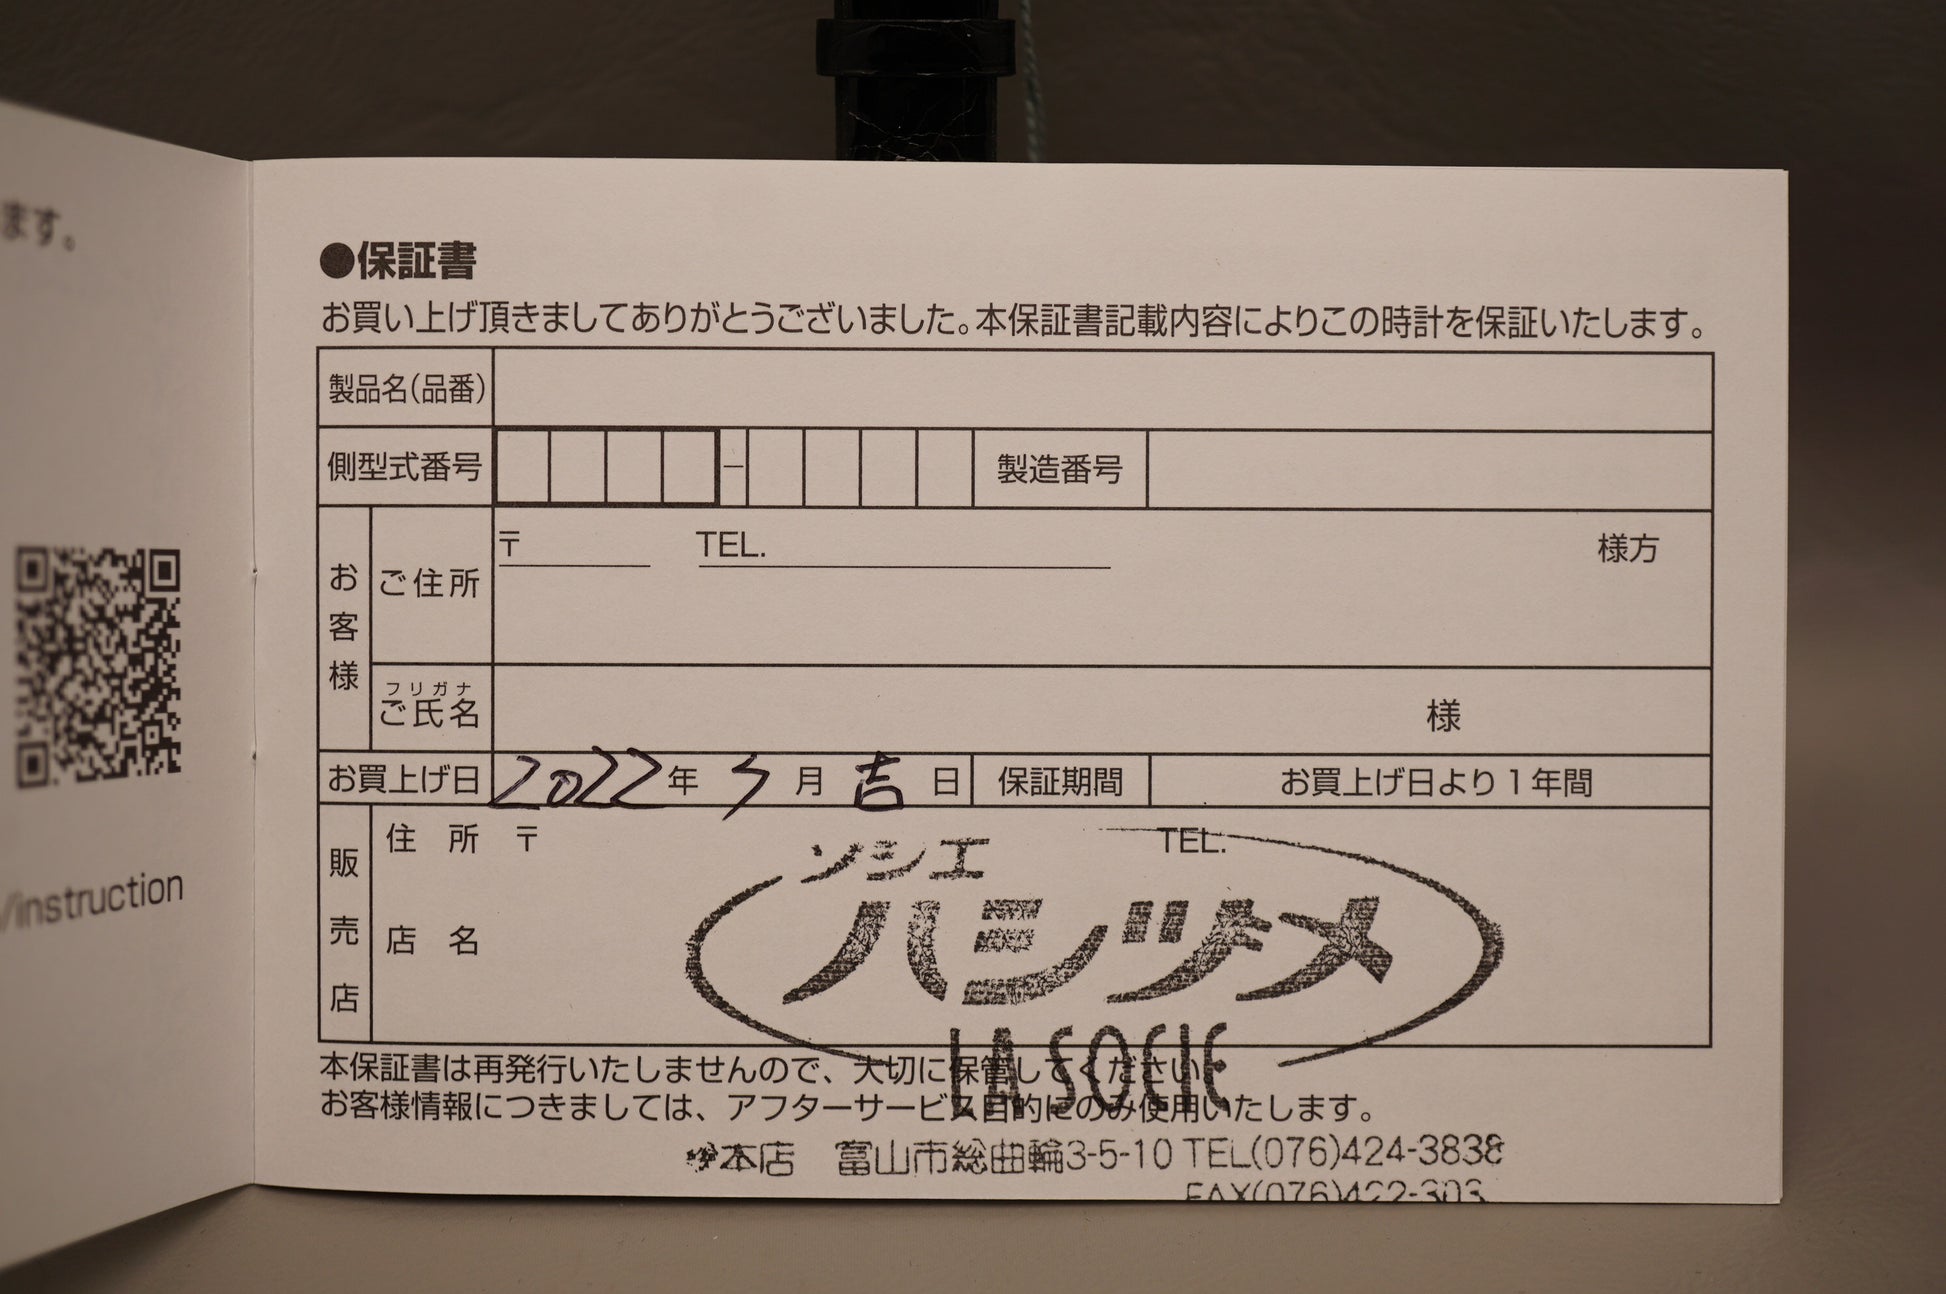 ます。
/instruction
●保証書
お買い上げ頂きましてありがとうございました。本保証書記載内容によりこの時計を保証いたします。
製品名(品番)
側型式番号 - 製造番号
お客様
ご住所 〒 TEL. 様方
フリガナ
ご氏名 様
お買上げ日 2022年 3月 吉日 保証期間 お買上げ日より1年間
販売店
住所 〒 TEL.
店名
ソシエ
ハシヅメ
LA SOCIE
本保証書は再発行いたしませんので、大切に保管してください
お客様情報につきましては、アフターサービス目的にのみ使用いたします。
本店 富山市総曲輪3-5-10 TEL(076)424-3838
FAX(076)422-303